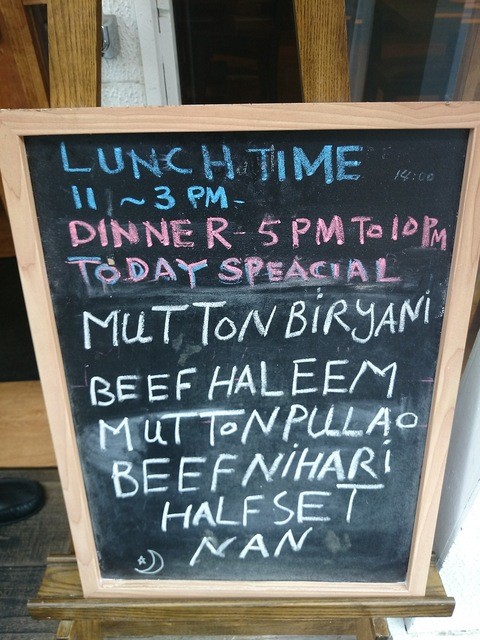 LUNCH TIME
14:00
11 ~ 3 PM -
DINNER - 5 PM To 10 PM
TODAY SPEACIAL
MUTToN BiRYANi
BEEF HALEEM
MUTToN PULLAo
BEEF NiHARi
HALF SET
NAN